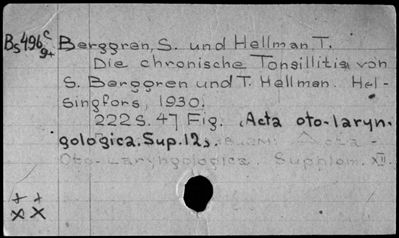 Bs496 c/g+ Berggren, S. und Hellman, T.
Die chronische Tonsillitis von
S. Berggren und T. Hellman. Hel-
singfors, 1930.
222 S. 47 Fig. Acta oto-laryn-
gologica. Sup. 12. Acta-
Oto-Laryngologica. Supplem. XII.
++
xx